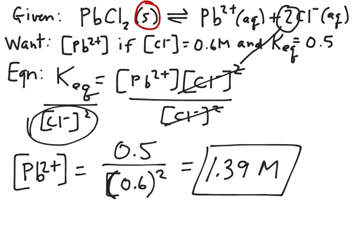 Given: PbCl₂ (s) ⇌ Pb²⁺(aq) + 2Cl⁻(aq)
Want: [Pb²⁺] if [Cl⁻] = 0.6M and Keq = 0.5
Eqn: Keq = [Pb²⁺][Cl⁻]²
[Cl⁻]² [Cl⁻]²
[Pb²⁺] = 0.5 / (0.6)² = 1.39 M